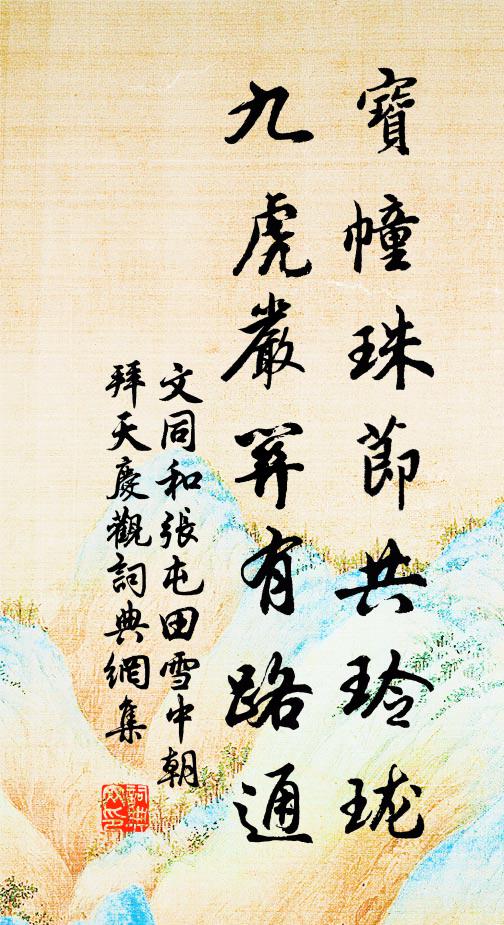 寶幢珠節共玲瓏
九虎嚴關有路通
文同和張屯田雪中朝
拜天慶觀詞典網集